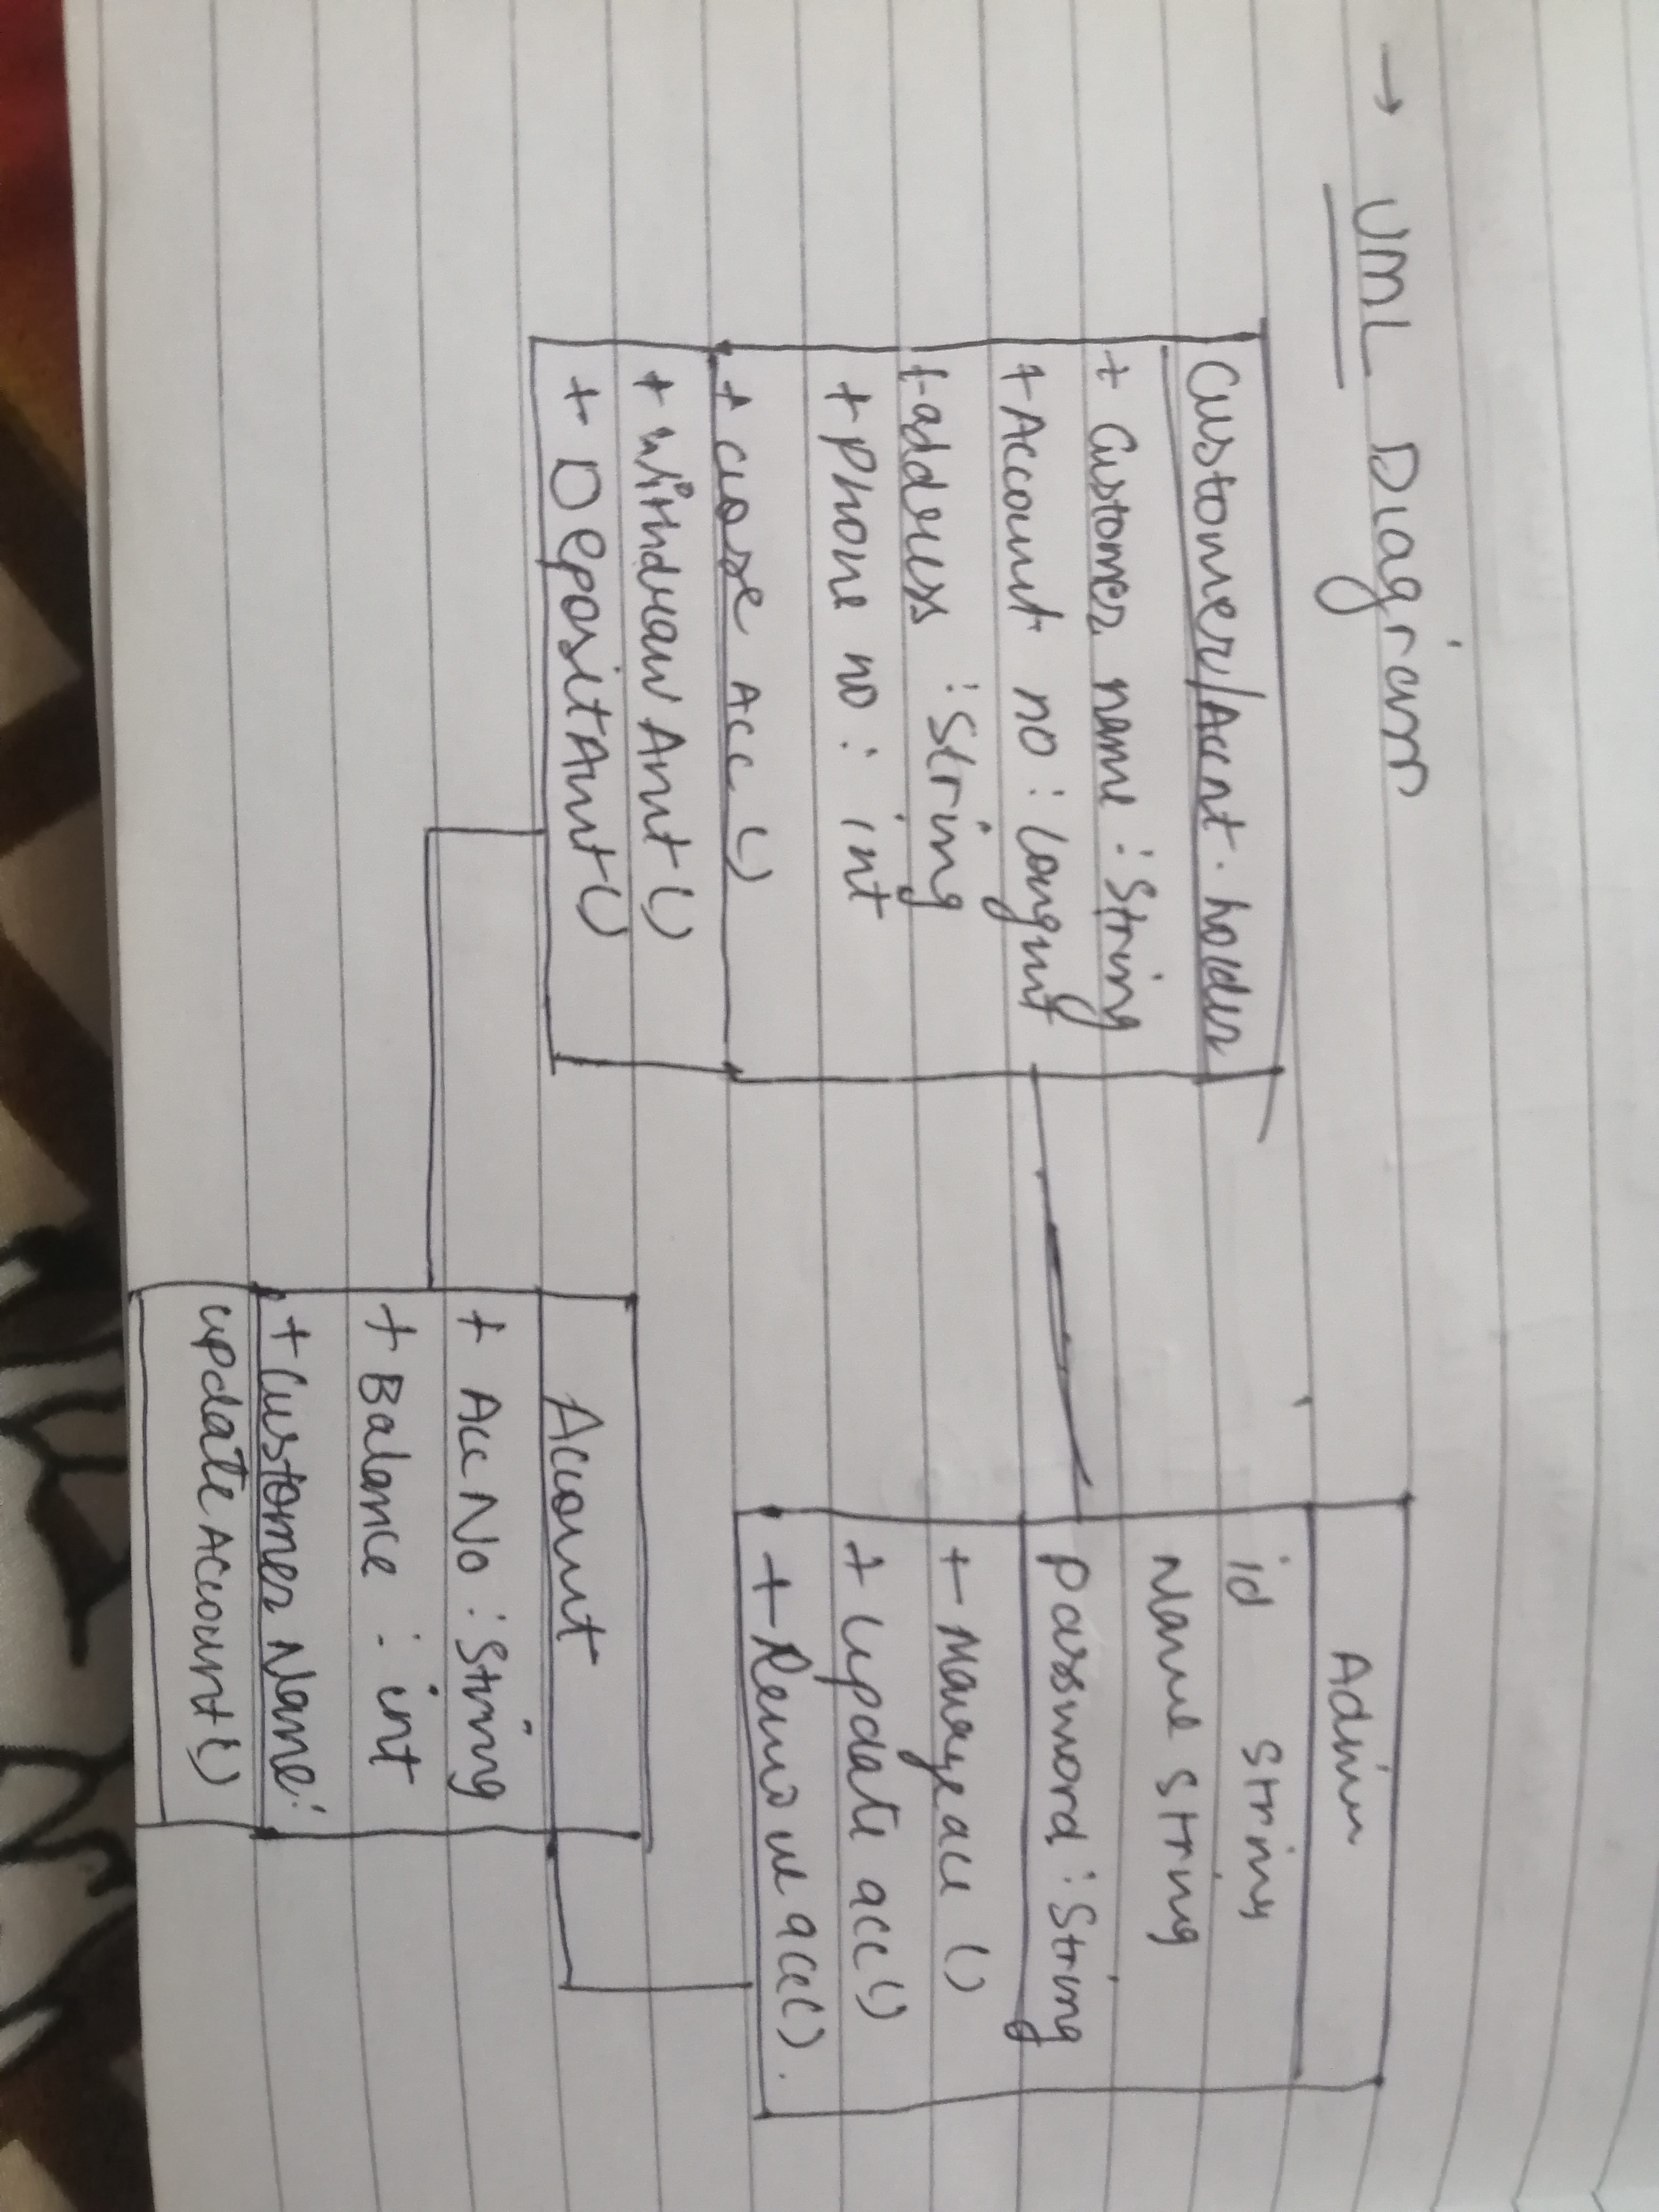 → UML Diagram
Customer/Accnt. holder
+ Customer name : String
+ Account no : longint
+ address : String
+ Phone no : int
+ close Acc ()
+ withdraw Amt ()
+ Deposit Amt ()
Admin
id String
Name String
password : String
+ Manage acc ()
+ Update acc ()
+ Remove acc ().
Account
+ Acc No : String
+ Balance : int
+ Customer Name :
update Account ()